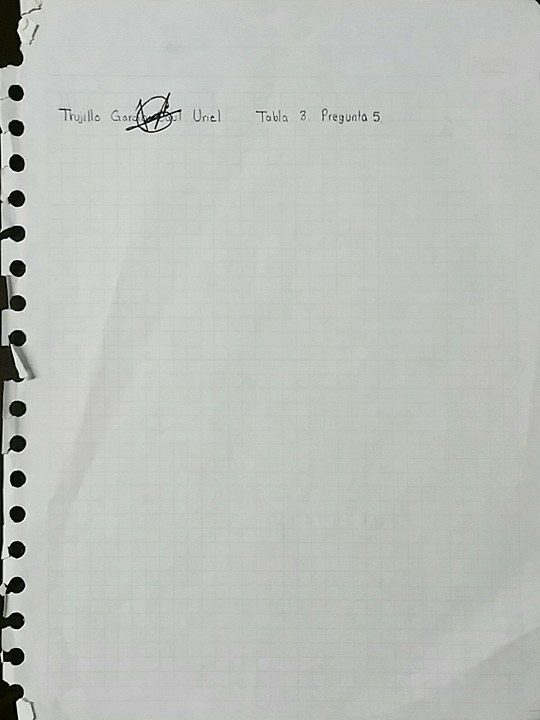 Trujillo García Saul Uriel Tabla 3. Pregunta 5